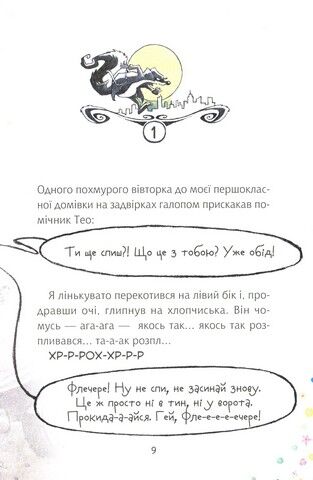 1
Одного похмурого вівторка до моєї першоклас-
ної домівки на задвірках галопом прискакав по-
мічник Тео:
Ти ще спиш?! Що це з тобою? Уже обід!
Я лінькувато перекотився на лівий бік і, про-
дравши очі, глипнув на хлопчиська. Він чо-
мусь — ага-ага — якось так... якось так роз-
пливався... та-а-ак розпл...
ХР-Р-РОХ-ХР-Р-Р
Флечере! Ну не спи, не засинай знову.
Це ж просто ні в тин, ні у ворота.
Прокида-а-айся. Гей, Фле-е-е-е-ечере!
9